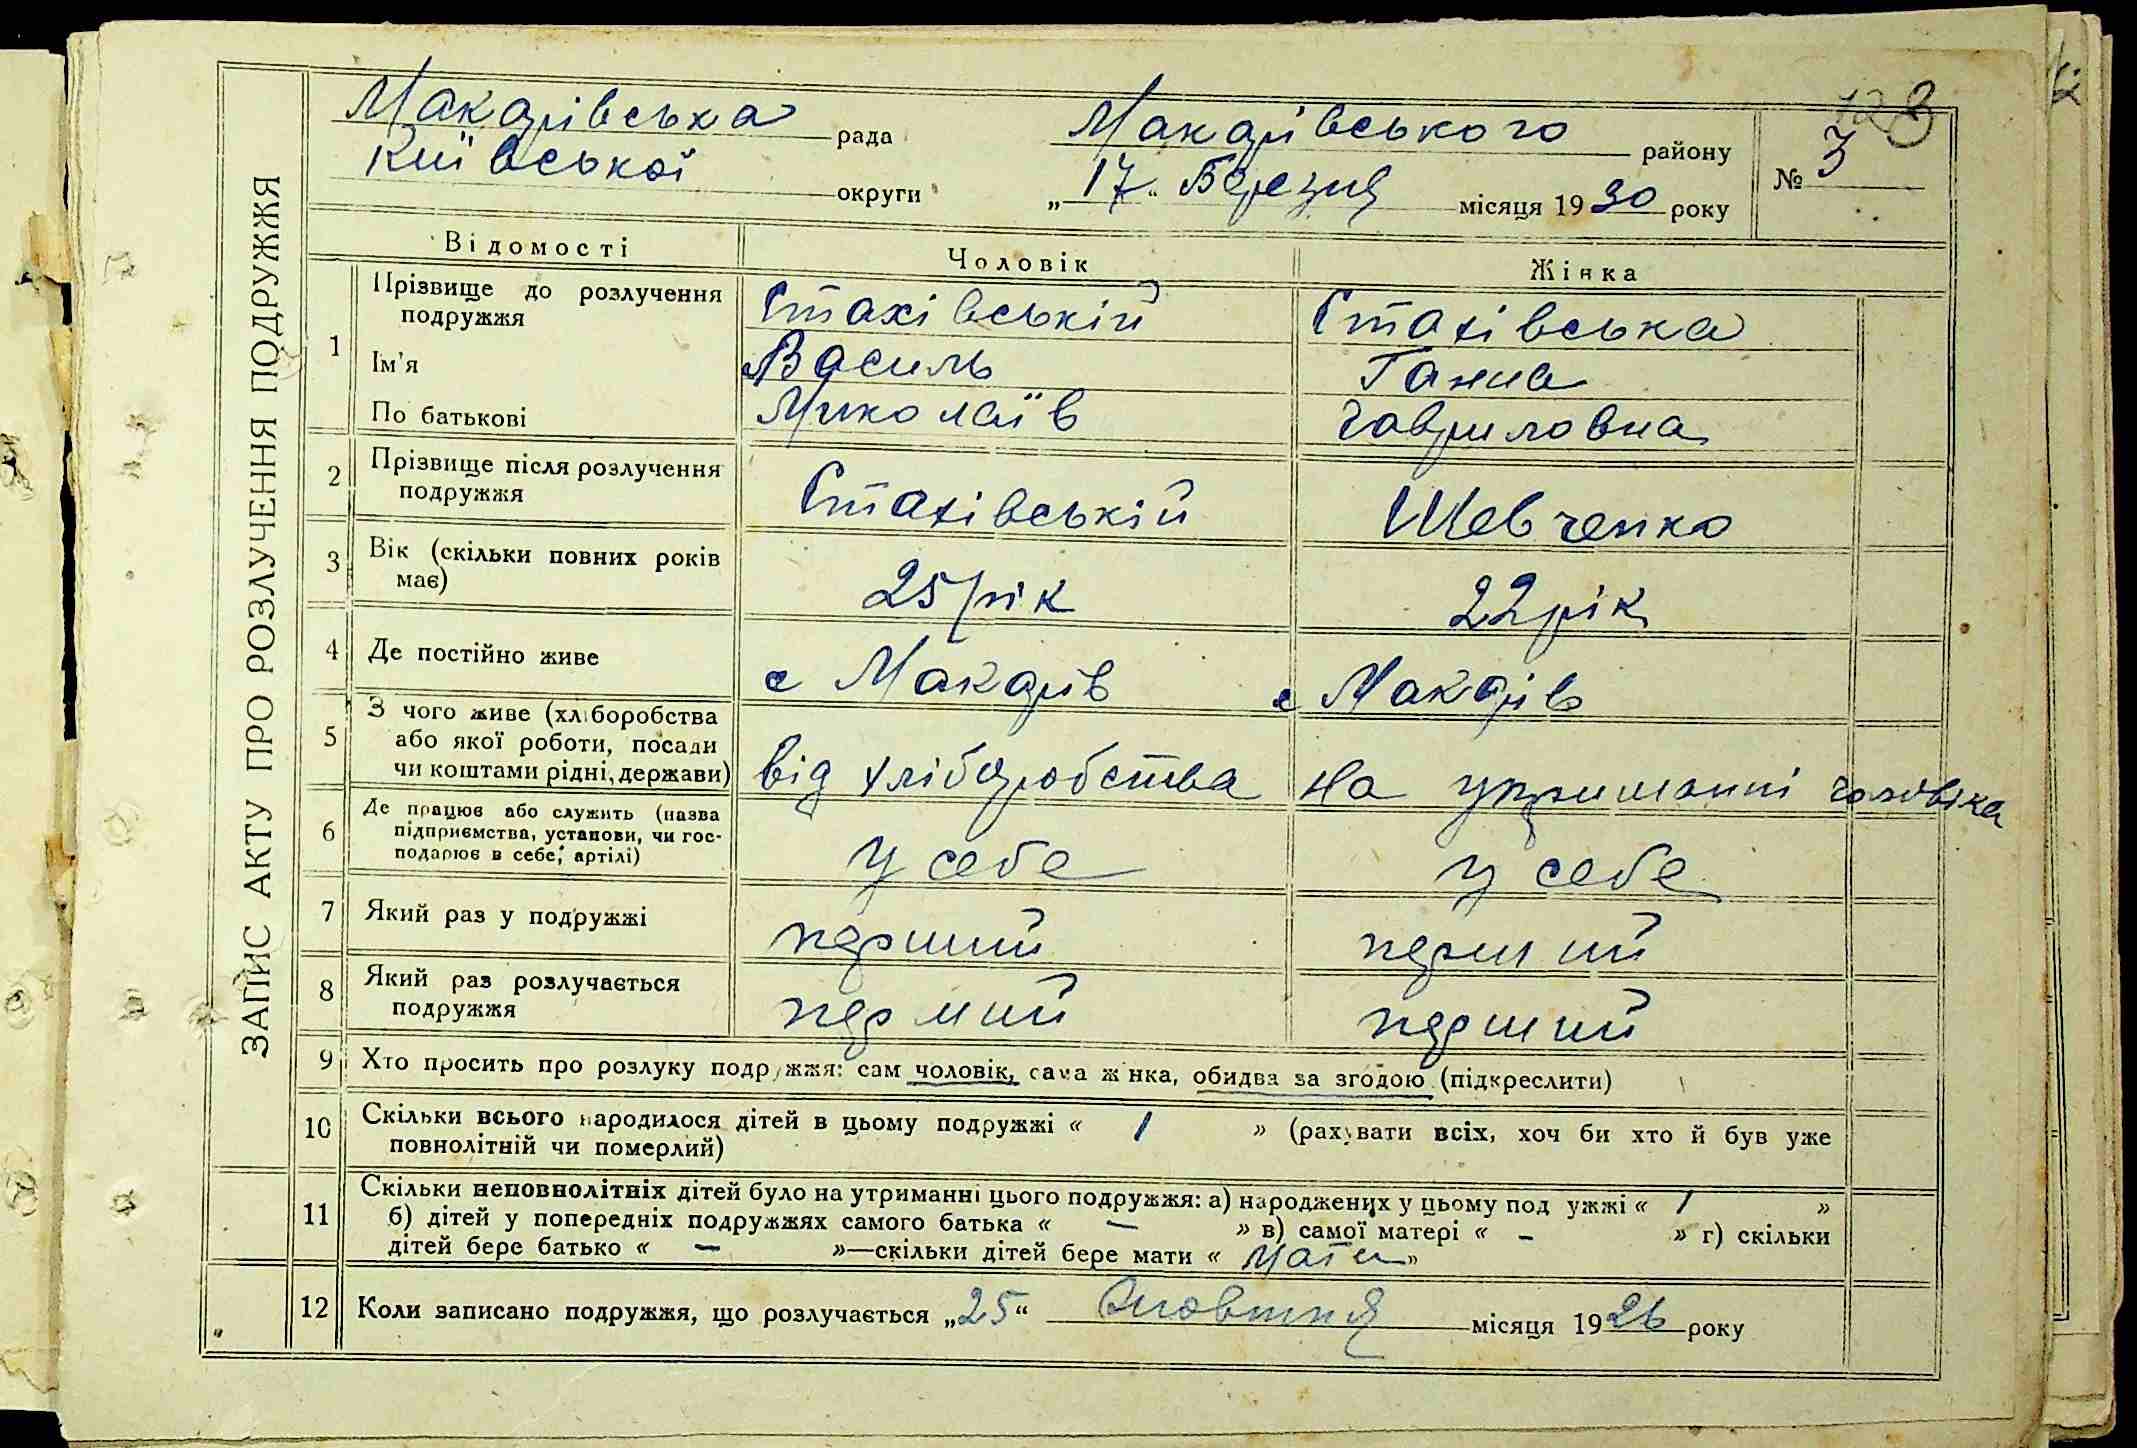 ЗАПИС АКТУ ПРО РОЗЛУЧЕННЯ ПОДРУЖЖЯ
Макарівська рада Макарівського району № 3
Київської округи „17“ Березня місяця 1930 року
Відомості Чоловік Жінка
1 Прізвище до розлучення подружжя Стахівській Стахівська
Ім'я Василь Ганна
По батькові Миколаїв Гавриловна
2 Прізвище після розлучення подружжя Стахівській Шевченко
3 Вік (скільки повних років має) 25 рік 22 рік
4 Де постійно живе с Макарів с Макарів
5 З чого живе (хліборобства або якої роботи, посади чи коштами рідні, держави) від хліборобства на утриманні чоловіка
6 Де працює або служить (назва підприємства, установи, чи господарює в себе, артілі) у себе у себе
7 Який раз у подружжі перший перший
8 Який раз розлучається подружжя перший перший
9 Хто просить про розлуку подружжя: сам чоловік, сама жінка, обидва за згодою (підкреслити)
10 Скільки всього народилося дітей в цьому подружжі « 1 » (рахувати всіх, хоч би хто й був уже
повнолітній чи померлий)
11 Скільки неповнолітніх дітей було на утриманні цього подружжя: а) народжених у цьому подружжі « 1 »
б) дітей у попередніх подружжях самого батька « — » в) самої матері « – » г) скільки
дітей бере батько « — »—скільки дітей бере мати « мати »
12 Коли записано подружжя, що розлучається „25“ Жовтня місяця 1926 року